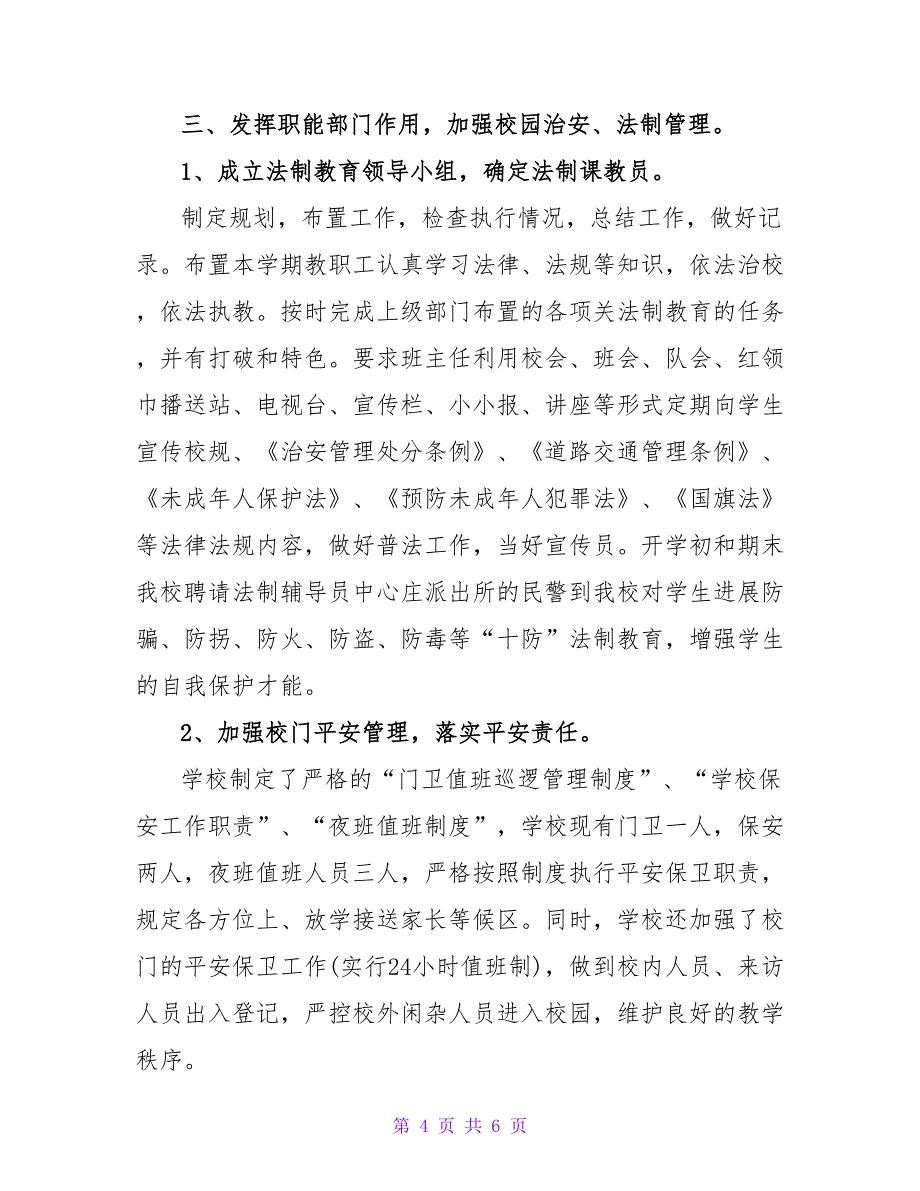 三、发挥职能部门作用，加强校园治安、法制管理。
1、成立法制教育领导小组，确定法制课教员。
制定规划，布置工作，检查执行情况，总结工作，做好记
录。布置本学期教职工认真学习法律、法规等知识，依法治校
，依法执教。按时完成上级部门布置的各项关法制教育的任务
，并有打破和特色。要求班主任利用校会、班会、队会、红领
巾播送站、电视台、宣传栏、小小报、讲座等形式定期向学生
宣传校规、《治安管理处分条例》、《道路交通管理条例》、
《未成年人保护法》、《预防未成年人犯罪法》、《国旗法》
等法律法规内容，做好普法工作，当好宣传员。开学初和期末
我校聘请法制辅导员中心庄派出所的民警到我校对学生进展防
骗、防拐、防火、防盗、防毒等“十防”法制教育，增强学生
的自我保护才能。
2、加强校门平安管理，落实平安责任。
学校制定了严格的“门卫值班巡逻管理制度”、“学校保
安工作职责”、“夜班值班制度”，学校现有门卫一人，保安
两人，夜班值班人员三人，严格按照制度执行平安保卫职责，
规定各方位上、放学接送家长等候区。同时，学校还加强了校
门的平安保卫工作(实行24小时值班制)，做到校内人员、来访
人员出入登记，严控校外闲杂人员进入校园，维护良好的教学
秩序。
第 4 页 共 6 页